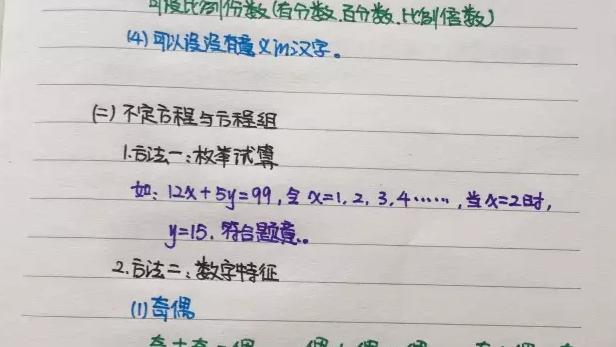 可设比例份数(百分数.百分数.比例倍数)
(4)可以设没有意义的汉字。
(二)不定方程与方程组
1.方法一:枚举试算
如:12x+5y=99,令x=1,2,3,4……,当x=2时,
y=15.符合题意。
2.方法二:数字特征
(1)奇偶